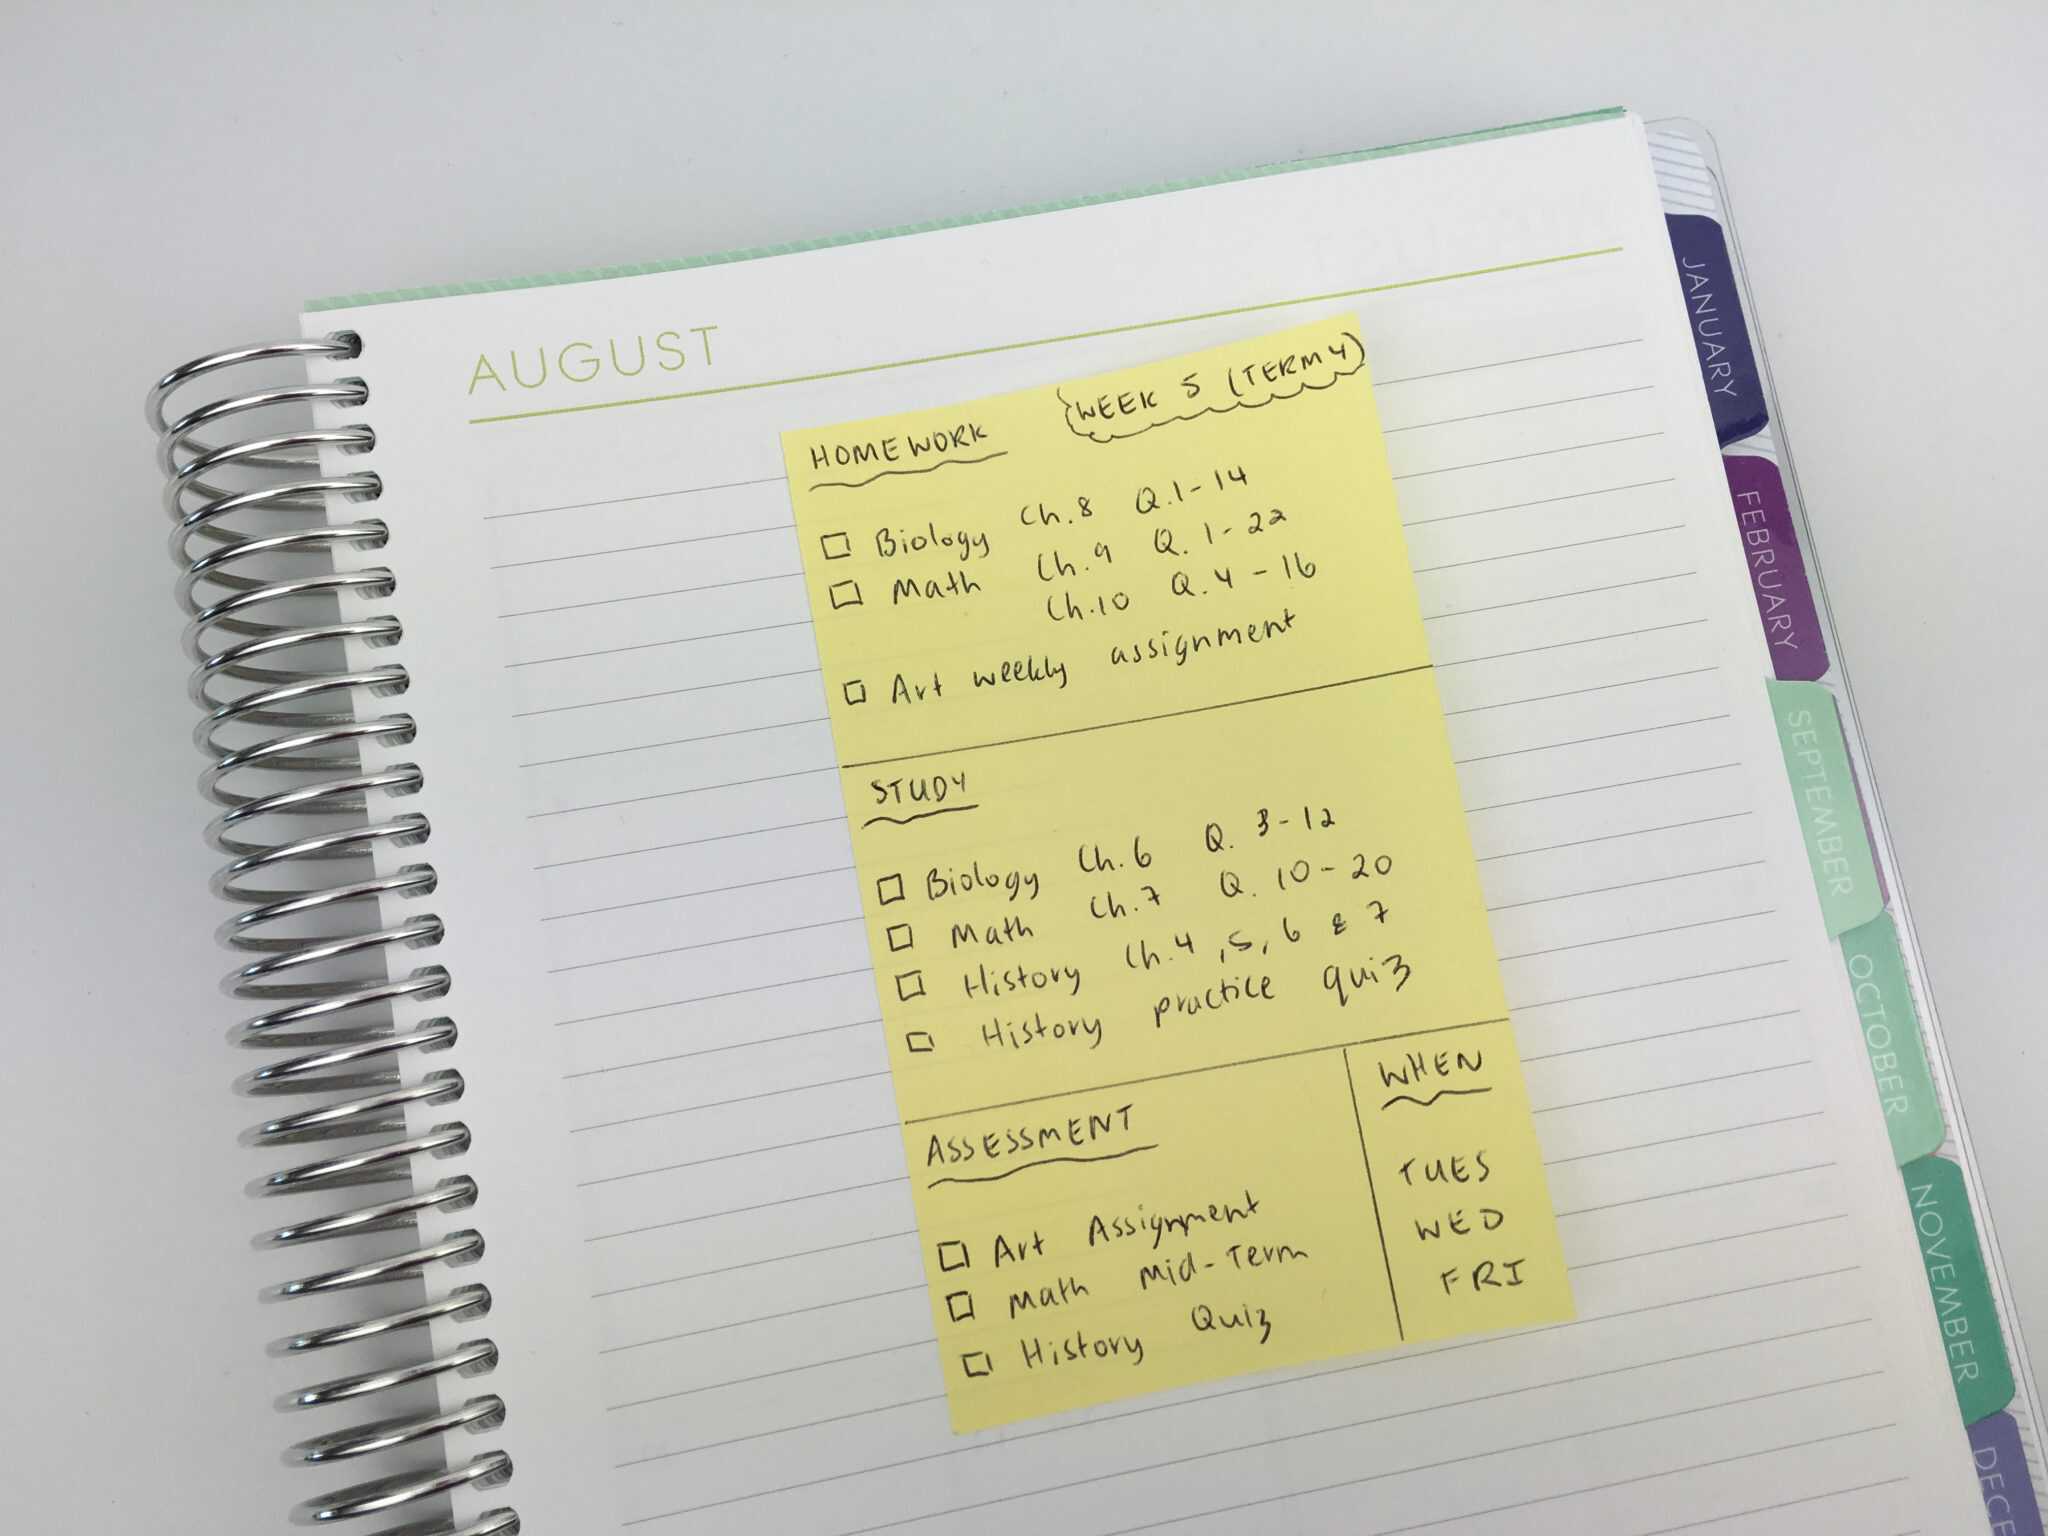 AUGUST
HOMEWORK
WEEK 5 (TERM 4)
Biology Ch.8 Q.1-14
Math Ch.9 Q.1-22
Ch.10 Q.4-16
Art weekly assignment
STUDY
Biology Ch.6 Q. 3-12
Math Ch.7 Q. 10-20
History Ch.4, 5, 6 & 7
History practice quiz
ASSESSMENT
WHEN
Art Assignment TUES
Math Mid-Term WED
History Quiz FRI
JANUARY
FEBRUARY
SEPTEMBER
OCTOBER
NOVEMBER
DECE